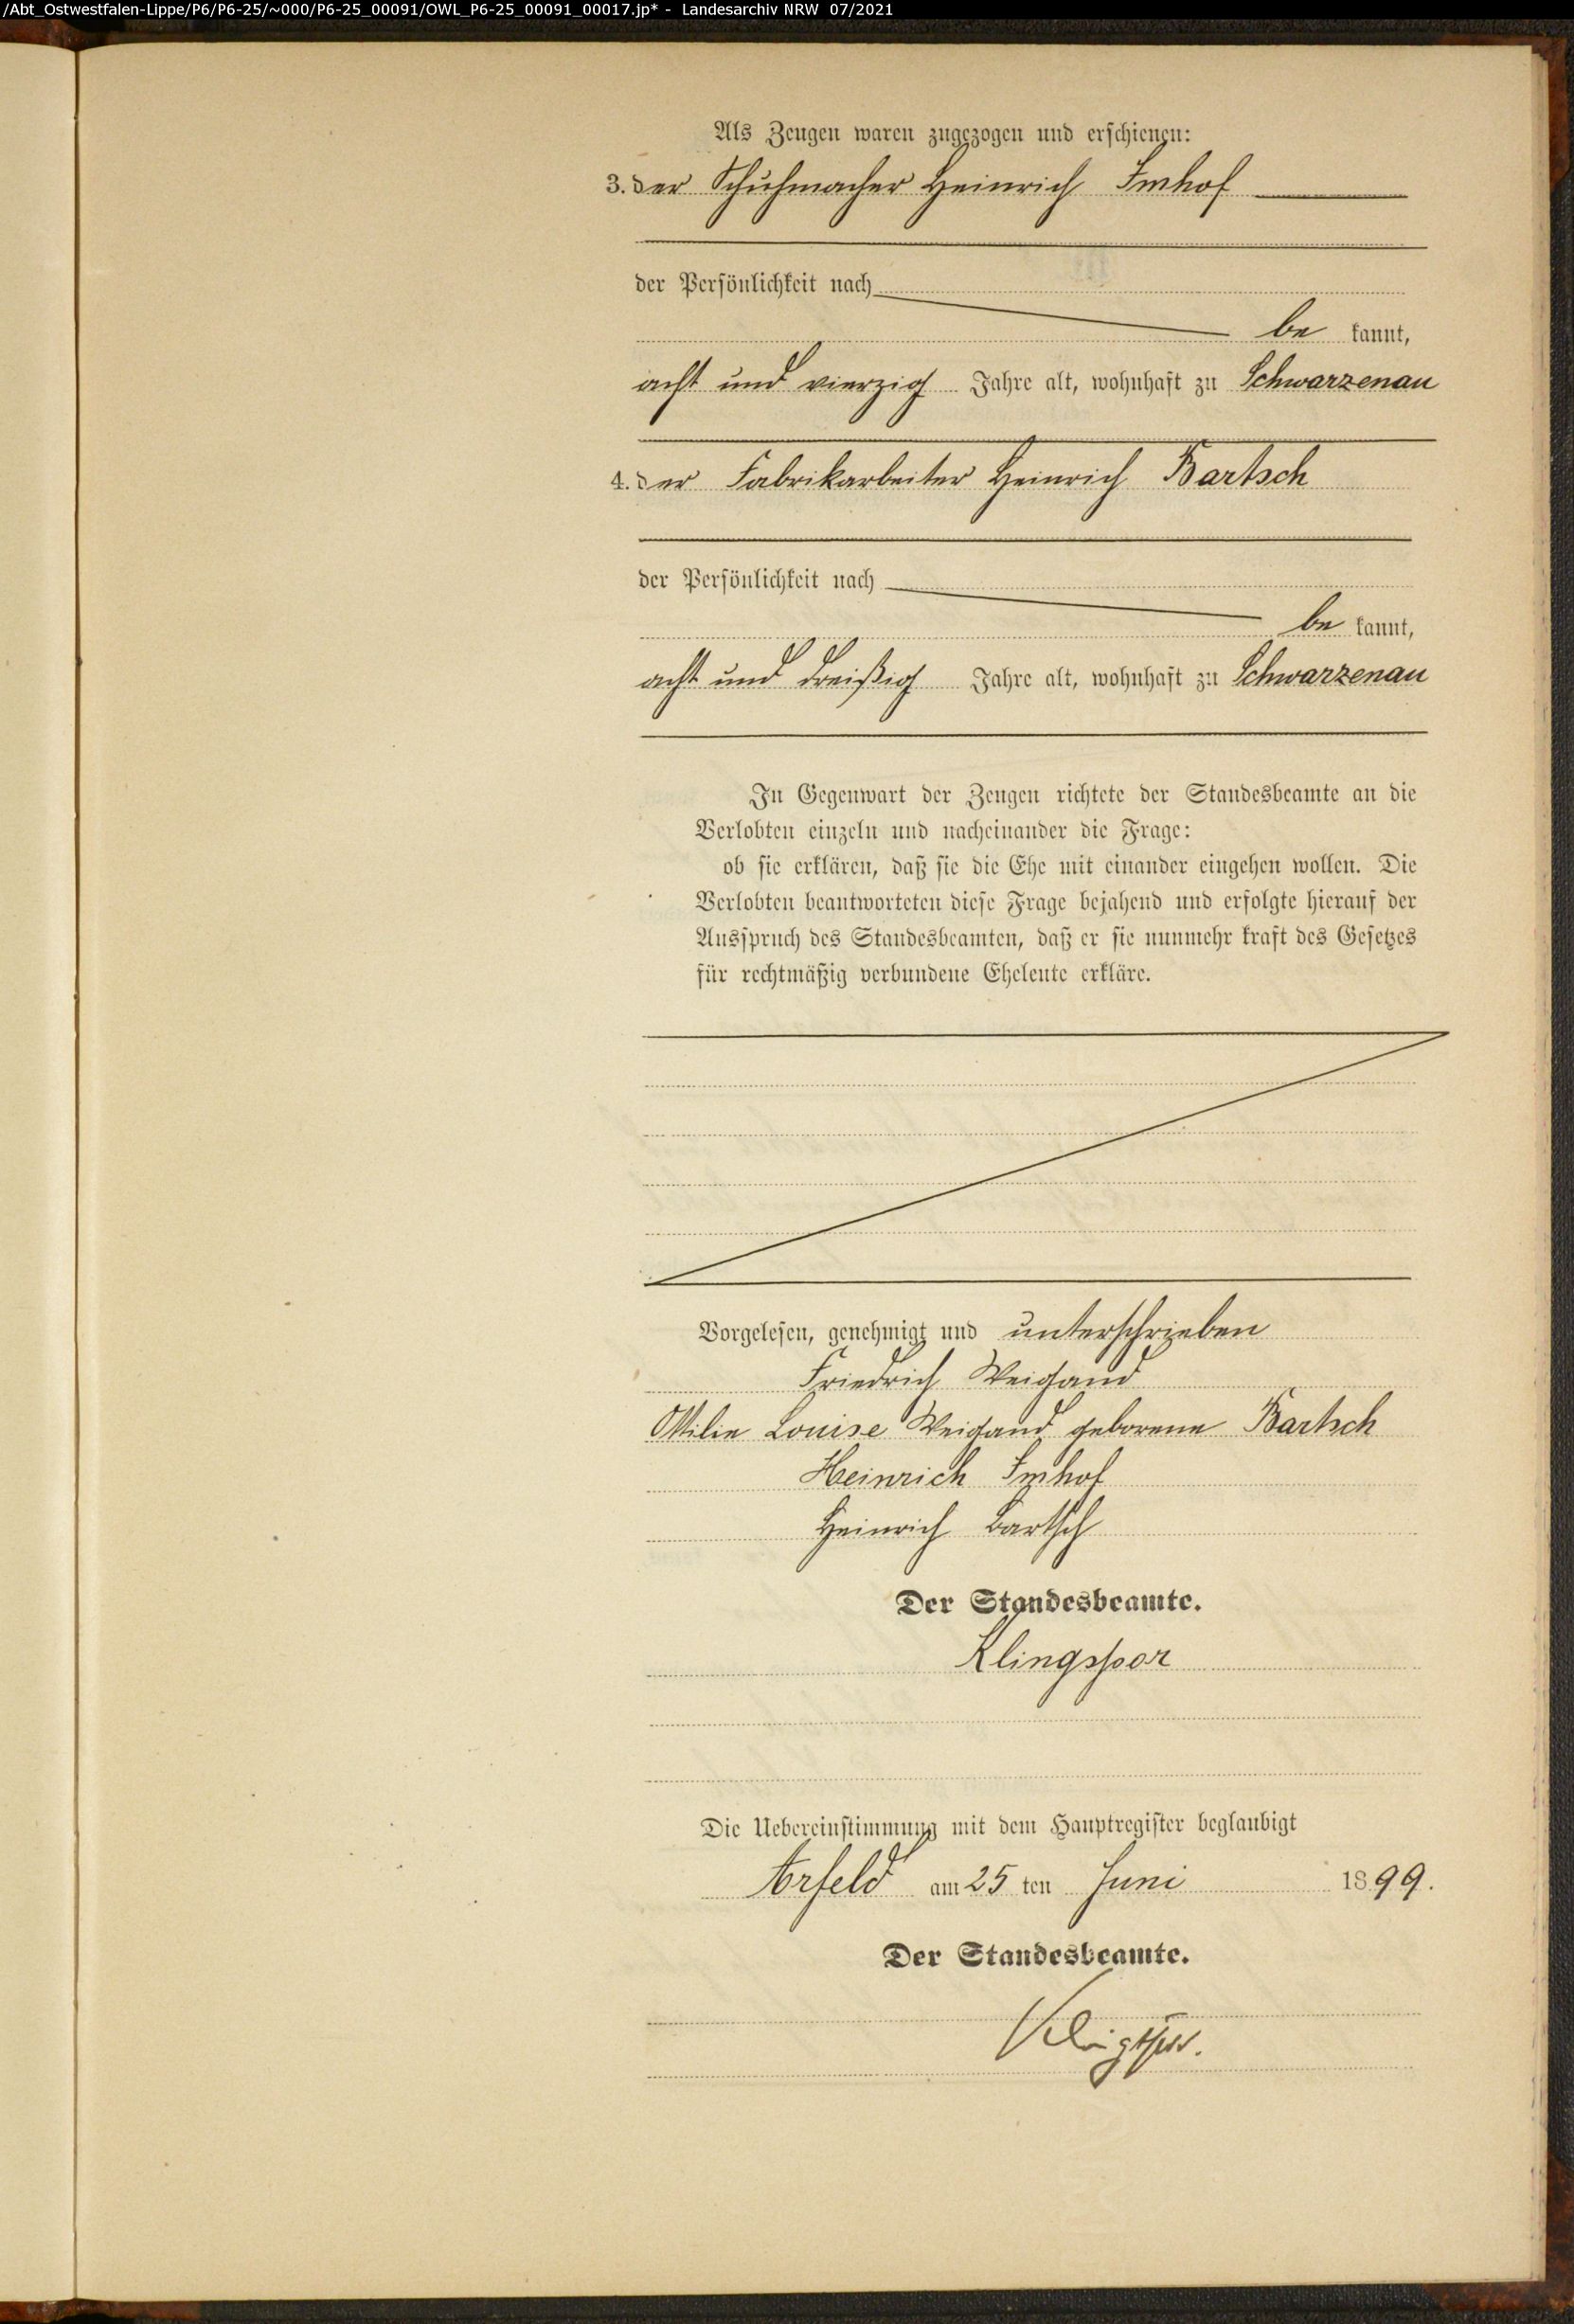 /Abt_Ostwestfalen-Lippe/P6/P6-25/~000/P6-25_00091/OWL_P6-25_00091_00017.jp* - Landesarchiv NRW 07/2021
Als Zeugen waren zugezogen und erschienen:
3. der Schuhmacher Heinrich Imhof
der Persönlichkeit nach
be kannt,
acht und vierzig Jahre alt, wohnhaft zu Schwarzenau
4. der Fabrikarbeiter Heinrich Bartsch
der Persönlichkeit nach
be kannt,
acht und dreißig Jahre alt, wohnhaft zu Schwarzenau
In Gegenwart der Zeugen richtete der Standesbeamte an die
Verlobten einzeln und nacheinander die Frage:
ob sie erklären, daß sie die Ehe mit einander eingehen wollen. Die
Verlobten beantworteten diese Frage bejahend und erfolgte hierauf der
Ausspruch des Standesbeamten, daß er sie nunmehr kraft des Gesetzes
für rechtmäßig verbundene Eheleute erkläre.
Vorgelesen, genehmigt und unterschrieben
Friedrich Weigand
Ottilie Louise Weigand geborene Bartsch
Heinrich Imhof
Heinrich Bartsch
Der Standesbeamte.
Klingspor
Die Uebereinstimmung mit dem Hauptregister beglaubigt
Arfeld am 25 ten Juni 1899.
Der Standesbeamte.
Klingspor.